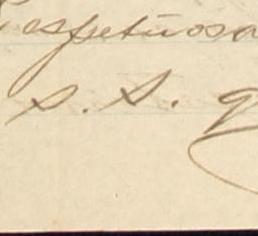 respetuosa
S. S. q